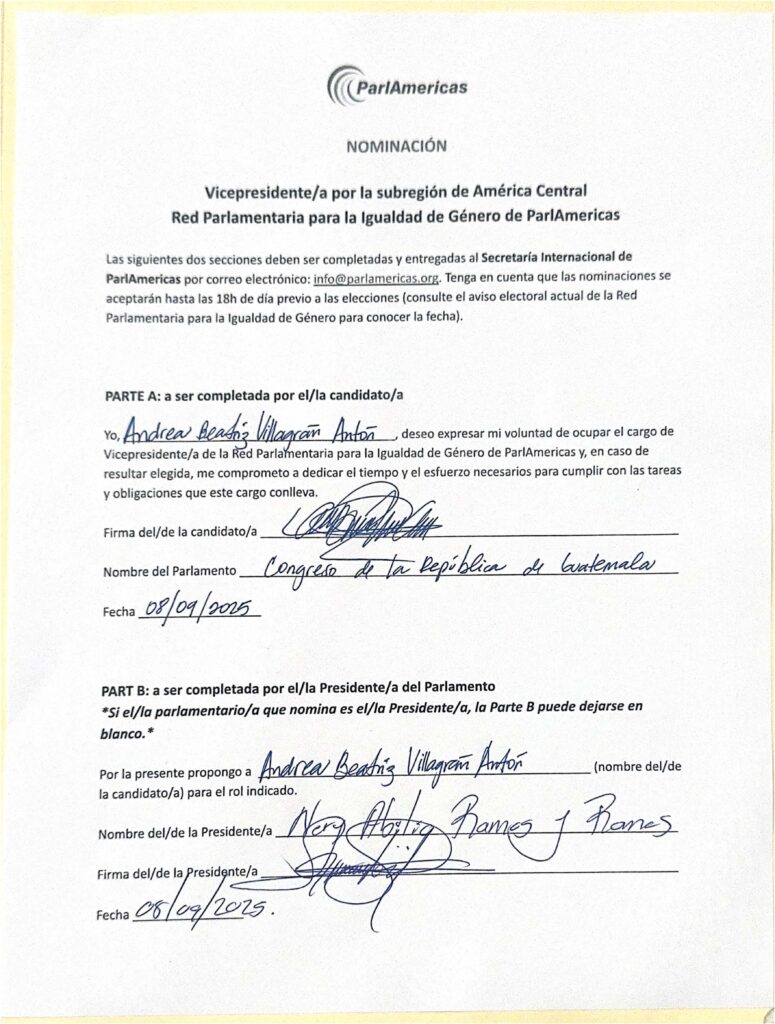 ParlAmericas
NOMINACIÓN
Vicepresidente/a por la subregión de América Central
Red Parlamentaria para la Igualdad de Género de ParlAmericas
Las siguientes dos secciones deben ser completadas y entregadas al Secretaría Internacional de
ParlAmericas por correo electrónico: info@parlamericas.org. Tenga en cuenta que las nominaciones se
aceptarán hasta las 18h de día previo a las elecciones (consulte el aviso electoral actual de la Red
Parlamentaria para la Igualdad de Género para conocer la fecha).
PARTE A: a ser completada por el/la candidato/a
Yo, Andrea Beatriz Villagrán Antón, deseo expresar mi voluntad de ocupar el cargo de
Vicepresidente/a de la Red Parlamentaria para la Igualdad de Género de ParlAmericas y, en caso de
resultar elegida, me comprometo a dedicar el tiempo y el esfuerzo necesarios para cumplir con las tareas
y obligaciones que este cargo conlleva.
Firma del/de la candidato/a
Nombre del Parlamento Congreso de la República de Guatemala
Fecha 08/09/2025
PART B: a ser completada por el/la Presidente/a del Parlamento
*Si el/la parlamentario/a que nomina es el/la Presidente/a, la Parte B puede dejarse en
blanco.*
Por la presente propongo a Andrea Beatriz Villagrán Antón (nombre del/de
la candidato/a) para el rol indicado.
Nombre del/de la Presidente/a Nery Abilio Ramos y Ramos
Firma del/de la Presidente/a
Fecha 08/09/2025.